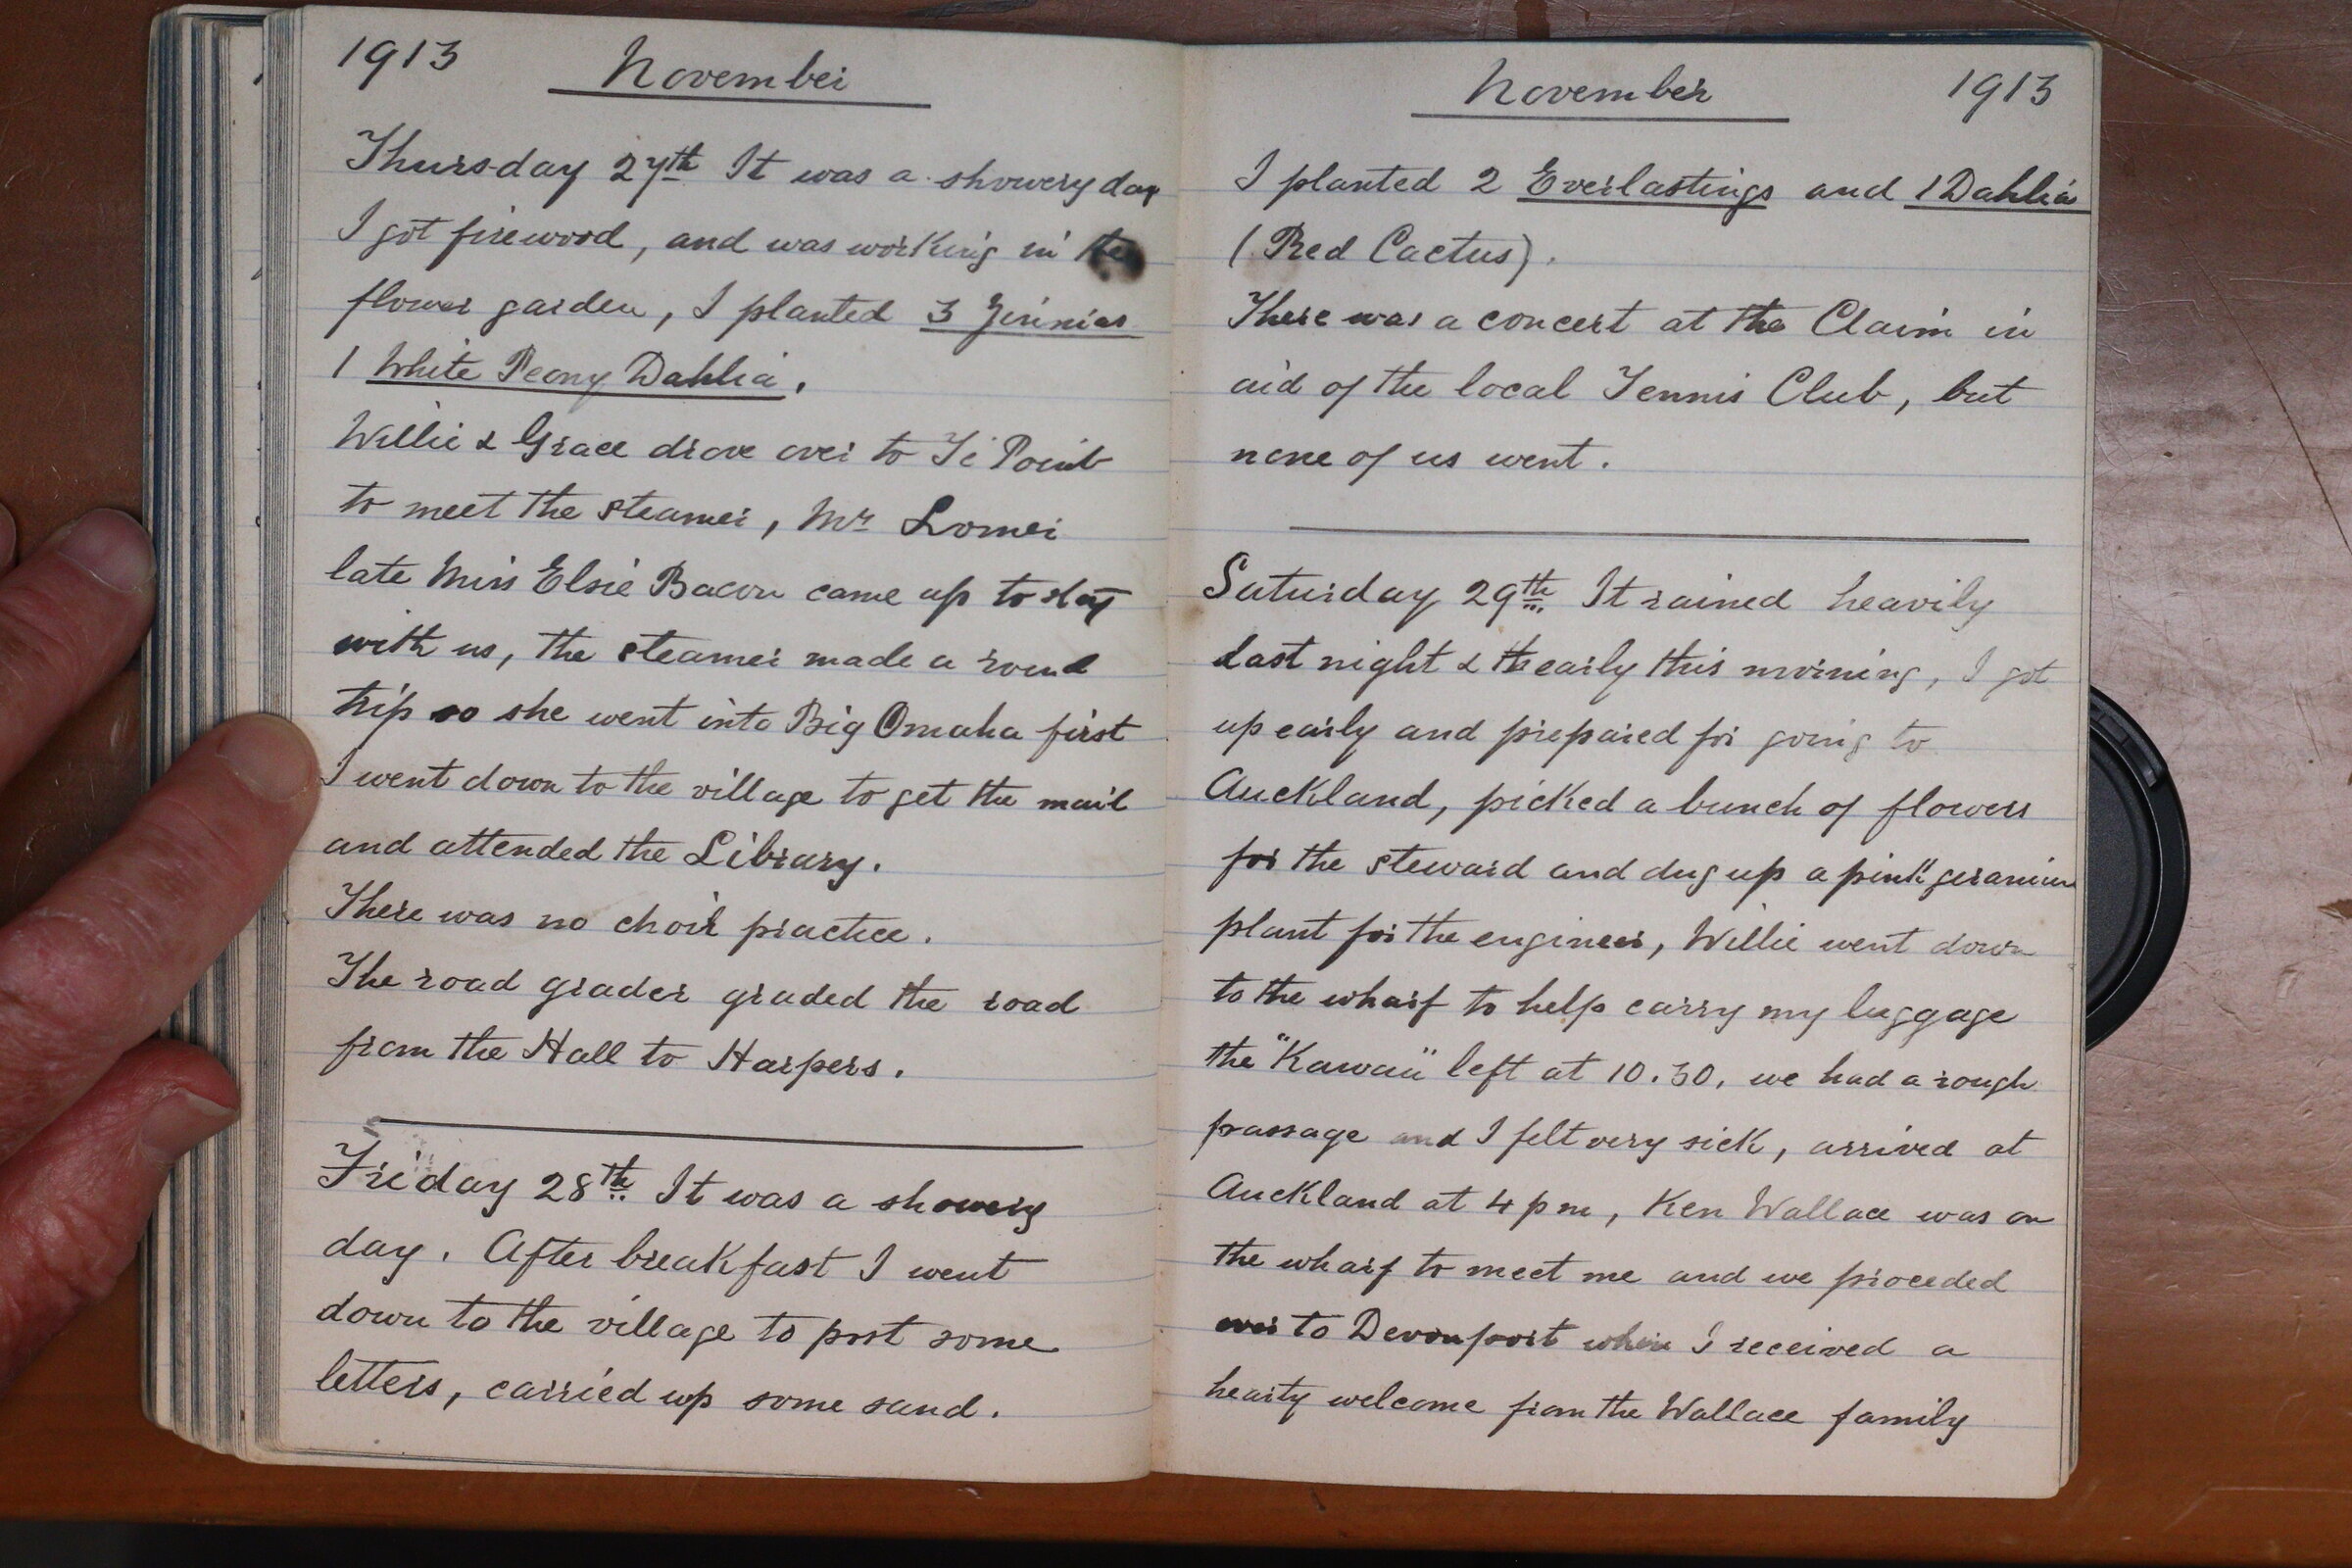 1913 November
Thursday 27th It was a showery day
I got firewood, and was working in the
flower garden, I planted 3 Zinnias
1 White Peony Dahlia.
Willie & Grace drove over to Ti Point
to meet the steamer, Mrs Lomer
late Miss Elsie Bacon came up to stay
with us, the steamer made a round
trip so she went into Big Omaha first
I went down to the village to get the mail
and attended the Library.
There was no choir practice.
The road grader graded the road
from the Hall to Harpers.
Friday 28th It was a showery
day. After breakfast I went
down to the village to post some
letters, carried up some sand.
November 1913
I planted 2 Everlastings and 1 Dahlia
(Red Cactus).
There was a concert at the Claim in
aid of the local Tennis Club, but
none of us went.
Saturday 29th It rained heavily
last night & early this morning, I got
up early and prepared for going to
Auckland, picked a bunch of flowers
for the steward and dug up a pink geranium
plant for the engineer, Willie went down
to the wharf to help carry my luggage
the "Kawau" left at 10.30, we had a rough
passage and I felt very sick, arrived at
Auckland at 4 pm, Ken Wallace was on
the wharf to meet me and we proceded
over to Devonport where I received a
hearty welcome from the Wallace family